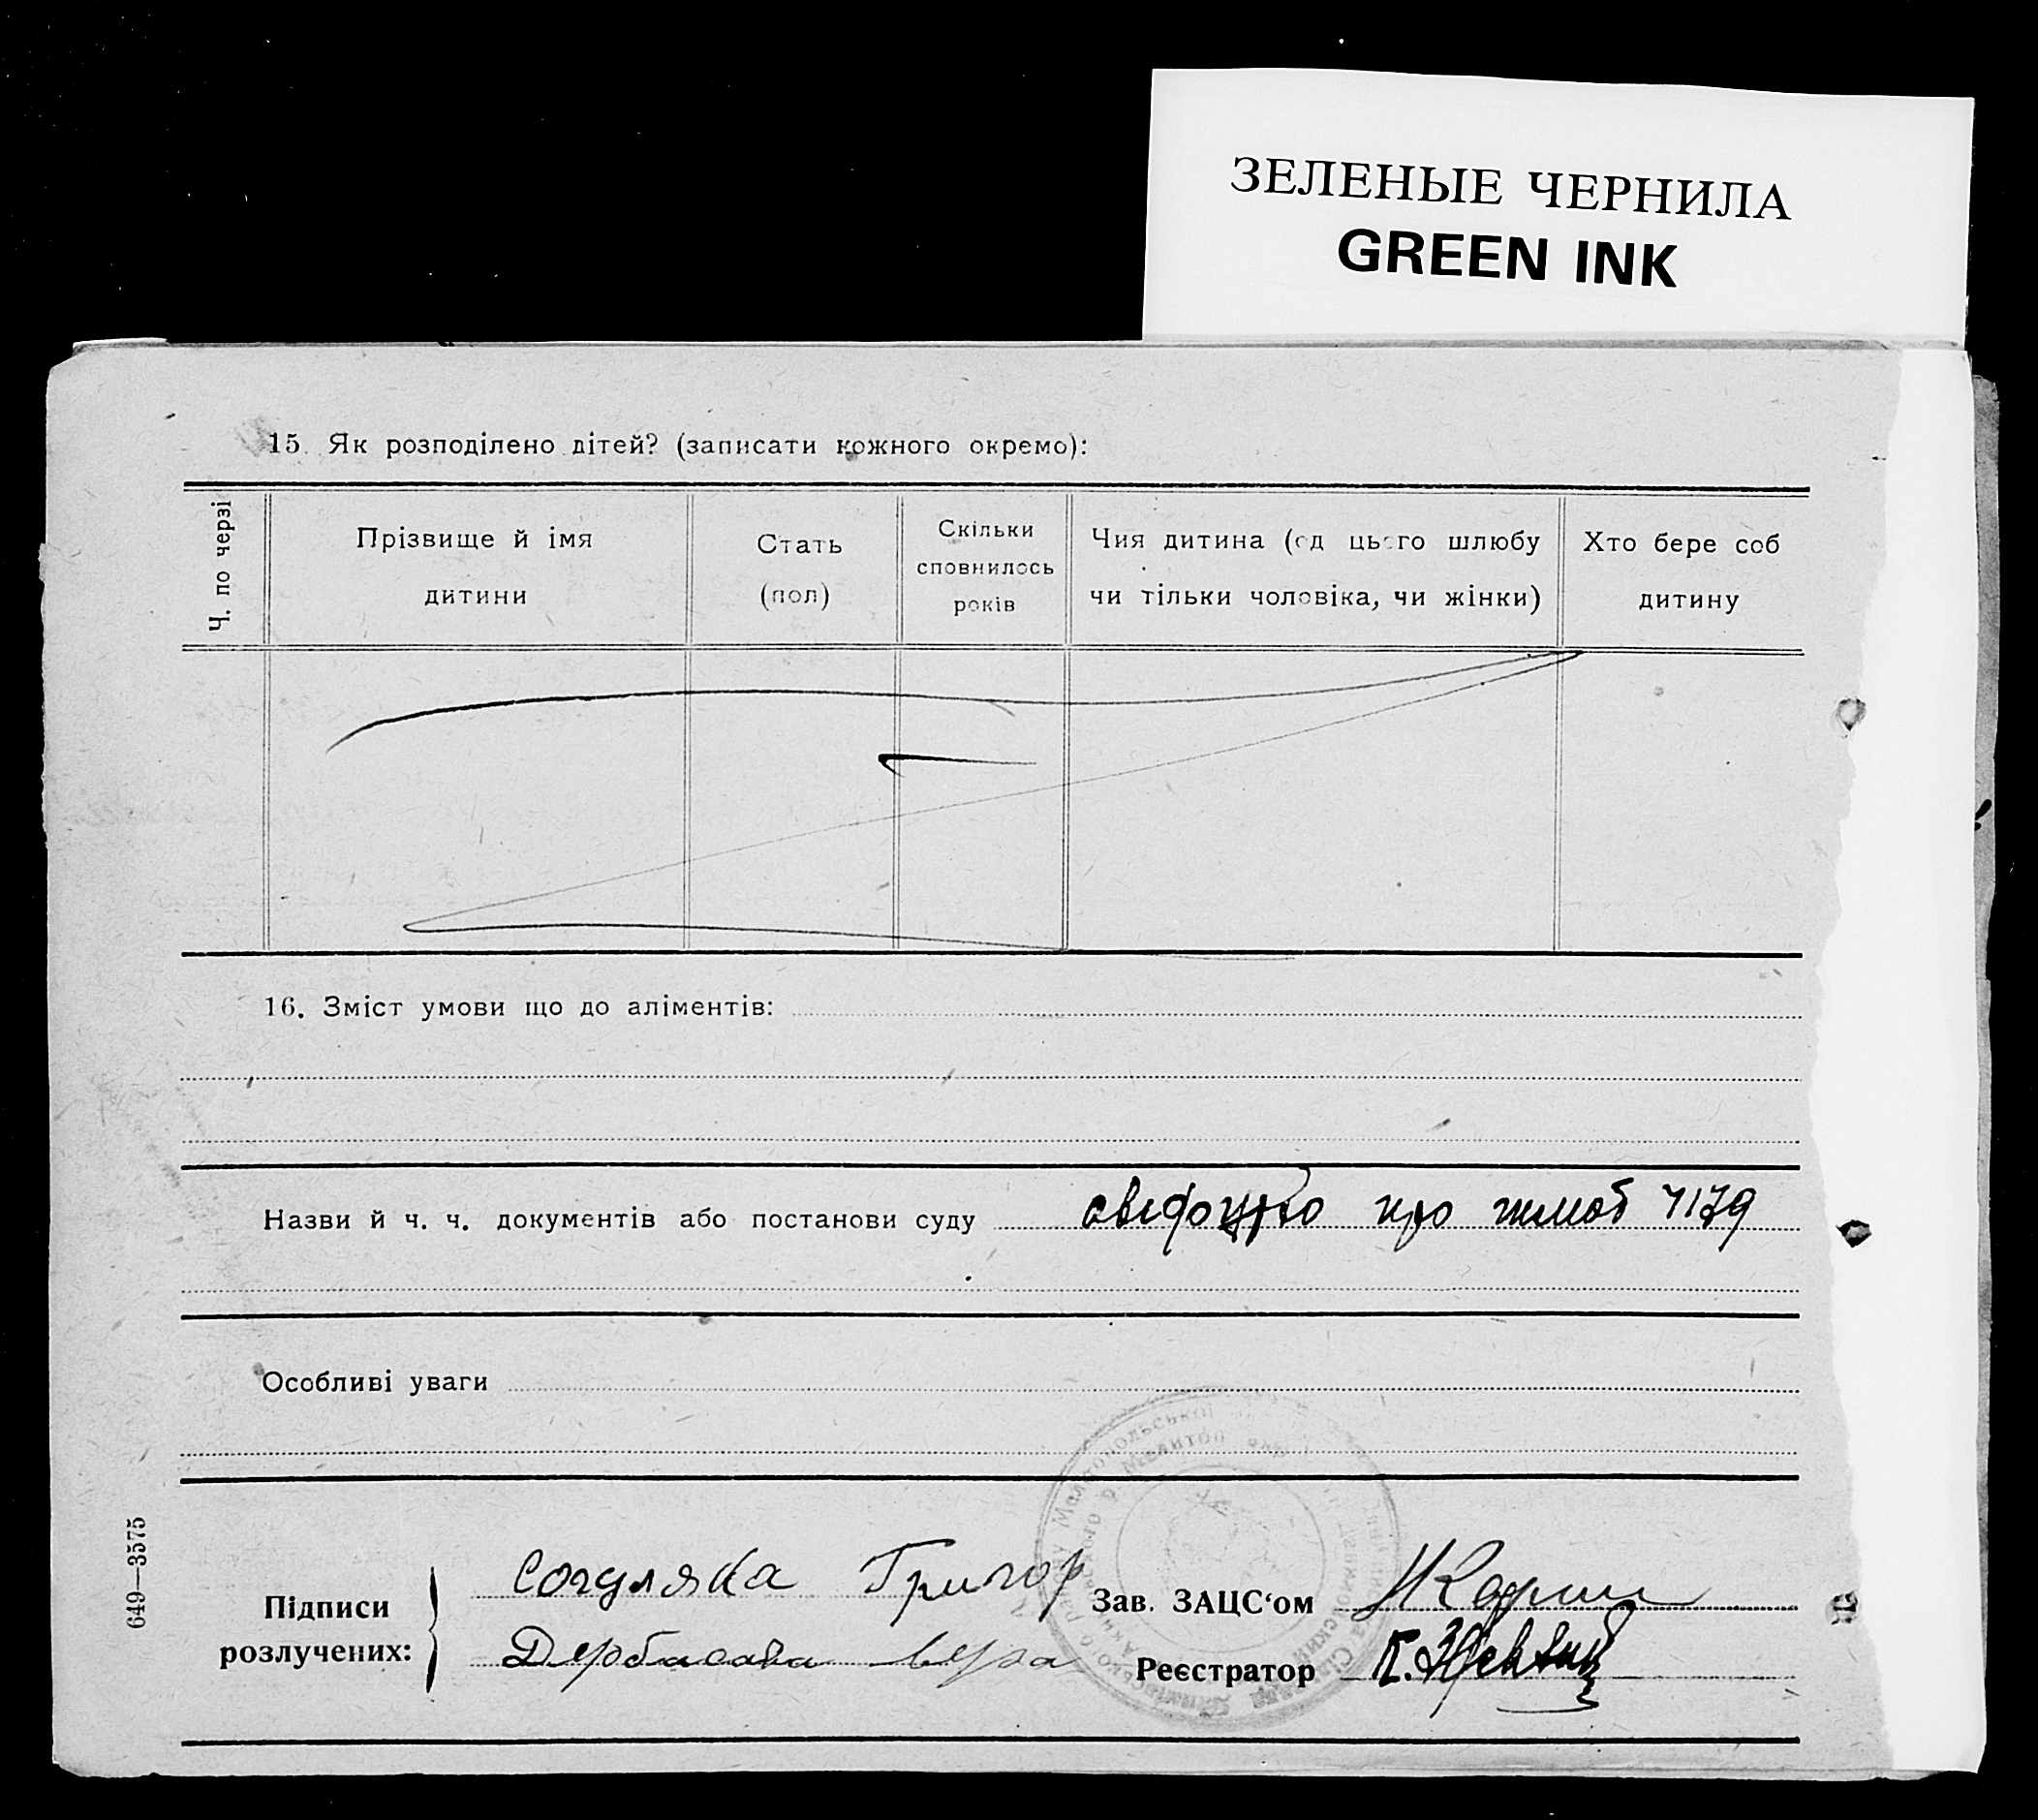 ЗЕЛЕНЫЕ ЧЕРНИЛА
GREEN INK
15. Як розподілено дітей? (записати кожного окремо):
Ч. по черзі
Прізвище й імя
дитини
Стать
(пол)
Скільки
сповнилось
років
Чия дитина (од цього шлюбу
чи тільки чоловіка, чи жінки)
Хто бере соб
дитину
16. Зміст умови що до аліментів:
Назви й ч. ч. документів або постанови суду про шлюб
Особливі уваги
649—3575
Підписи
розлучених:
Григор
Вера
Зав. ЗАЦС‘ом
Реєстратор